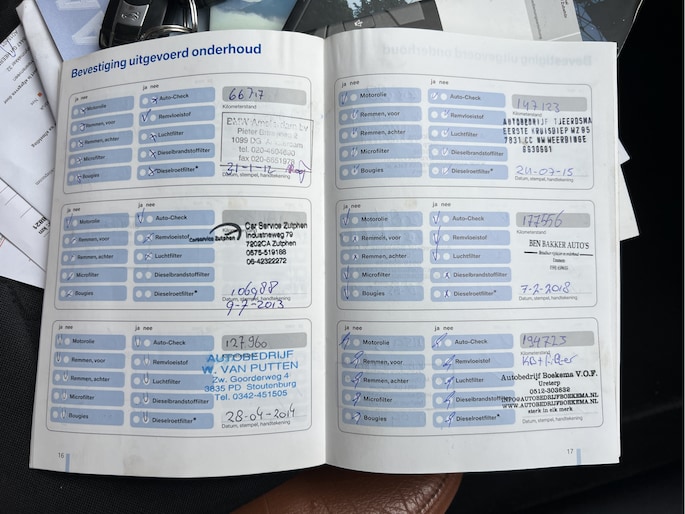 Bevestiging uitgevoerd onderhoud
ja nee
Motorolie
Remmen, voor
Remmen, achter
Microfilter
Bougies
ja nee
Auto-Check
Remvloeistof
Luchtfilter
Dieselbrandstoffilter
Dieselroetfilter*
66717
Kilometerstand
Datum, stempel, handtekening
21-1-12
ja nee
Motorolie
Remmen, voor
Remmen, achter
Microfilter
Bougies
ja nee
Auto-Check
Remvloeistof
Luchtfilter
Dieselbrandstoffilter
Dieselroetfilter*
Car Service Zutphen
Industrieweg 79
7202CA Zutphen
0575-519188
06-42322272
Carservice Zutphen
106988
9-7-2013
Datum, stempel, handtekening
ja nee
Motorolie
Remmen, voor
Remmen, achter
Microfilter
Bougies
ja nee
Auto-Check
Remvloeistof
Luchtfilter
Dieselbrandstoffilter
Dieselroetfilter*
127960
AUTOBEDRIJF
W. VAN PUTTEN
Zw. Goorderweg 4
3835 PD Stoutenburg
Tel. 0342-451505
28-04-2014
Datum, stempel, handtekening
16
ja nee
Motorolie
Remmen, voor
Remmen, achter
Microfilter
Bougies
ja nee
Auto-Check
Remvloeistof
Luchtfilter
Dieselbrandstoffilter
Dieselroetfilter*
147123
Kilometerstand
AUTOBEDRIJF TJEERDSMA
EERSTE KRUISDIEP WZ 85
7831 CC NW WEERDINGE
24-07-15
Datum, stempel, handtekening
ja nee
Motorolie
Remmen, voor
Remmen, achter
Microfilter
Bougies
ja nee
Auto-Check
Remvloeistof
Luchtfilter
Dieselbrandstoffilter
Dieselroetfilter*
177556
Kilometerstand
BEN BAKKER AUTO'S
7-2-2018
Datum, stempel, handtekening
ja nee
Motorolie
Remmen, voor
Remmen, achter
Microfilter
Bougies
ja nee
Auto-Check
Remvloeistof
Luchtfilter
Dieselbrandstoffilter
Dieselroetfilter*
194723
Kilometerstand
Autobedrijf Boekema V.O.F.
Ureterp
0512-303632
INFO@AUTOBEDRIJFBOEKEMA.NL
WWW.AUTOBEDRIJFBOEKEMA.NL
sterk in elk merk
Datum, stempel, handtekening
17